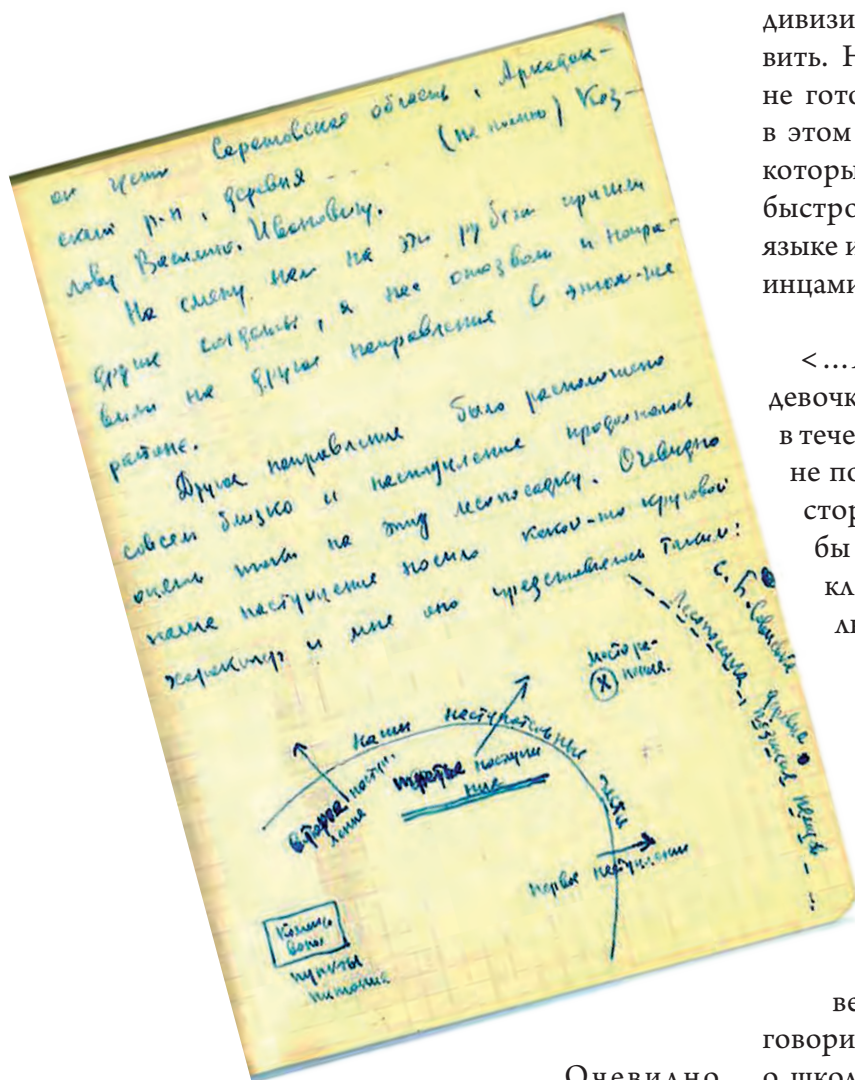 он Саратовская область, Аркадак-
ский р-н, деревня .... (не помню) Коз-
лову Василию Ивановичу.
На смену нам на эти рубежи пришли
другие солдаты, а нас отозвали и напра-
вили на другое направление в этом-же
районе.
Другое направление было расположено
совсем близко и наступление продолжалось
опять на эту лесопосадку. Очевидно
наше наступление носило какой-то круговой
характер и мне оно представлялось таким:
с.
деревня
Лесопосадка, позиция немцев
место ра-
нения.
X
Наши наступательные
второе наступ-
ление
третье наступле
ние
первое наступление
пункты
питания
дивизи
вить. Н
не гото
в этом
которы
быстро
языке и
инцами
<...
девочк
в тече
не по
стор
бы
кл
ли
ве
говори
Очевидно
о шкод